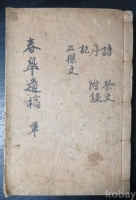 詩 祭文
序 附錄
記
上樑文
春皐遺稿 單